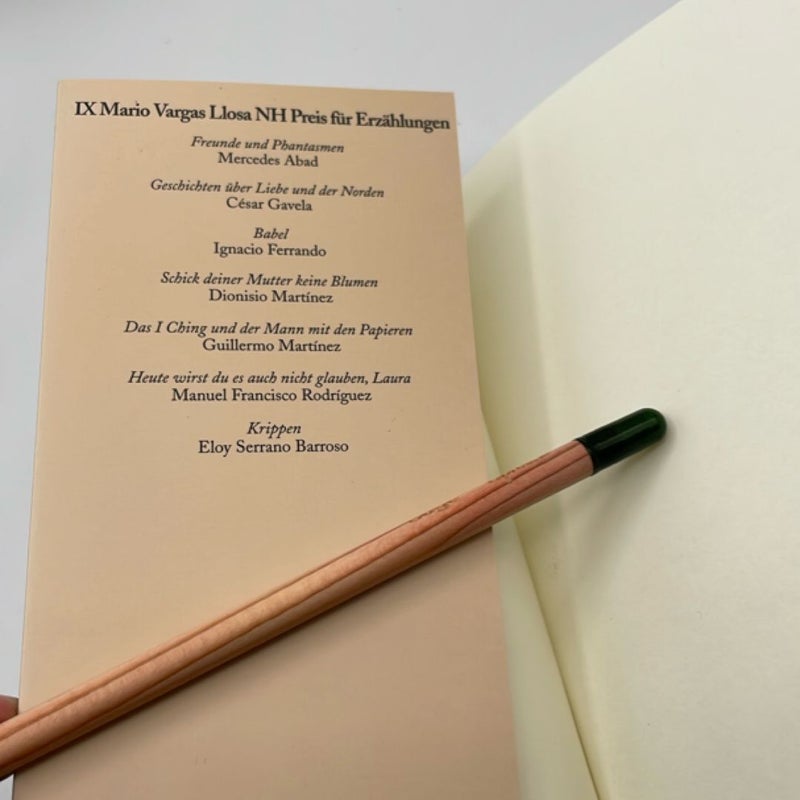 IX Mario Vargas Llosa NH Preis für Erzählungen
Freunde und Phantasmen
Mercedes Abad
Geschichten über Liebe und der Norden
César Gavela
Babel
Ignacio Ferrando
Schick deiner Mutter keine Blumen
Dionisio Martínez
Das I Ching und der Mann mit den Papieren
Guillermo Martínez
Heute wirst du es auch nicht glauben, Laura
Manuel Francisco Rodríguez
Krippen
Eloy Serrano Barroso